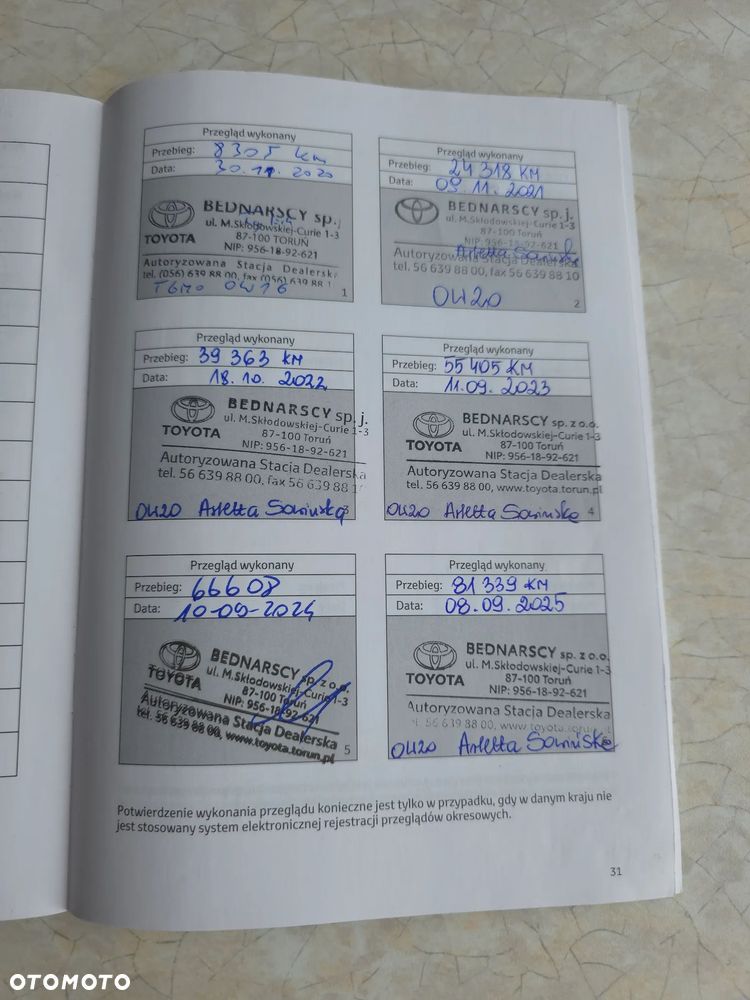 Przegląd wykonany
Przebieg: 8305 km
Data: 30.11.2020
BEDNARSCY sp.j.
ul. M.Skłodowskiej-Curie 1-3
87-100 TORUŃ
TOYOTA
NIP: 956-18-92-621
Autoryzowana Stacja Dealerska
tel. (056) 639 88 00, fax (056) 639 88 1
0W16
1
Przegląd wykonany
Przebieg: 24 318 KM
Data: 09.11.2021
BEDNARSCY sp. j.
ul. M.Skłodowskiej-Curie 1-3
87-100 TORUŃ
TOYOTA
NIP: 956-18-92-621
Autoryzowana Stacja Dealerska
tel. 56 639 88 00, fax 56 639 88 10
0W20
2
Przegląd wykonany
Przebieg: 39 363 KM
Data: 18.10.2022
BEDNARSCY sp. j.
ul. M.Skłodowskiej-Curie 1-3
87-100 Toruń
TOYOTA
NIP: 956-18-92-621
Autoryzowana Stacja Dealerska
tel. 56 639 88 00, fax 56 639 88 1
0W20 Arletta
3
Przegląd wykonany
Przebieg: 55 405 KM
Data: 11.09.2023
BEDNARSCY sp. z o.o.
ul. M.Skłodowskiej-Curie 1-3
87-100 Toruń
TOYOTA
NIP: 956-18-92-621
Autoryzowana Stacja Dealerska
tel. 56 639 88 00, www.toyota.torun.pl
0W20 Arletta
4
Przegląd wykonany
Przebieg: 66608
Data: 10-09-2024
BEDNARSCY sp. z o.o.
ul. M.Skłodowskiej-Curie 1-3
87-100 Toruń
TOYOTA
NIP: 956-18-92-621
Autoryzowana Stacja Dealerska
tel. 56 639 88 00, www.toyota.torun.pl
5
Przegląd wykonany
Przebieg: 81 339 KM
Data: 08.09.2025
BEDNARSCY sp. z o.o.
ul. M.Skłodowskiej-Curie 1-3
87-100 Toruń
TOYOTA
NIP: 956-18-92-621
Autoryzowana Stacja Dealerska
tel. 56 639 88 00, www.toyota.torun.pl
0W20 Arletta
Potwierdzenie wykonania przeglądu konieczne jest tylko w przypadku, gdy w danym kraju nie
jest stosowany system elektronicznej rejestracji przeglądów okresowych.
31
OTOMOTO